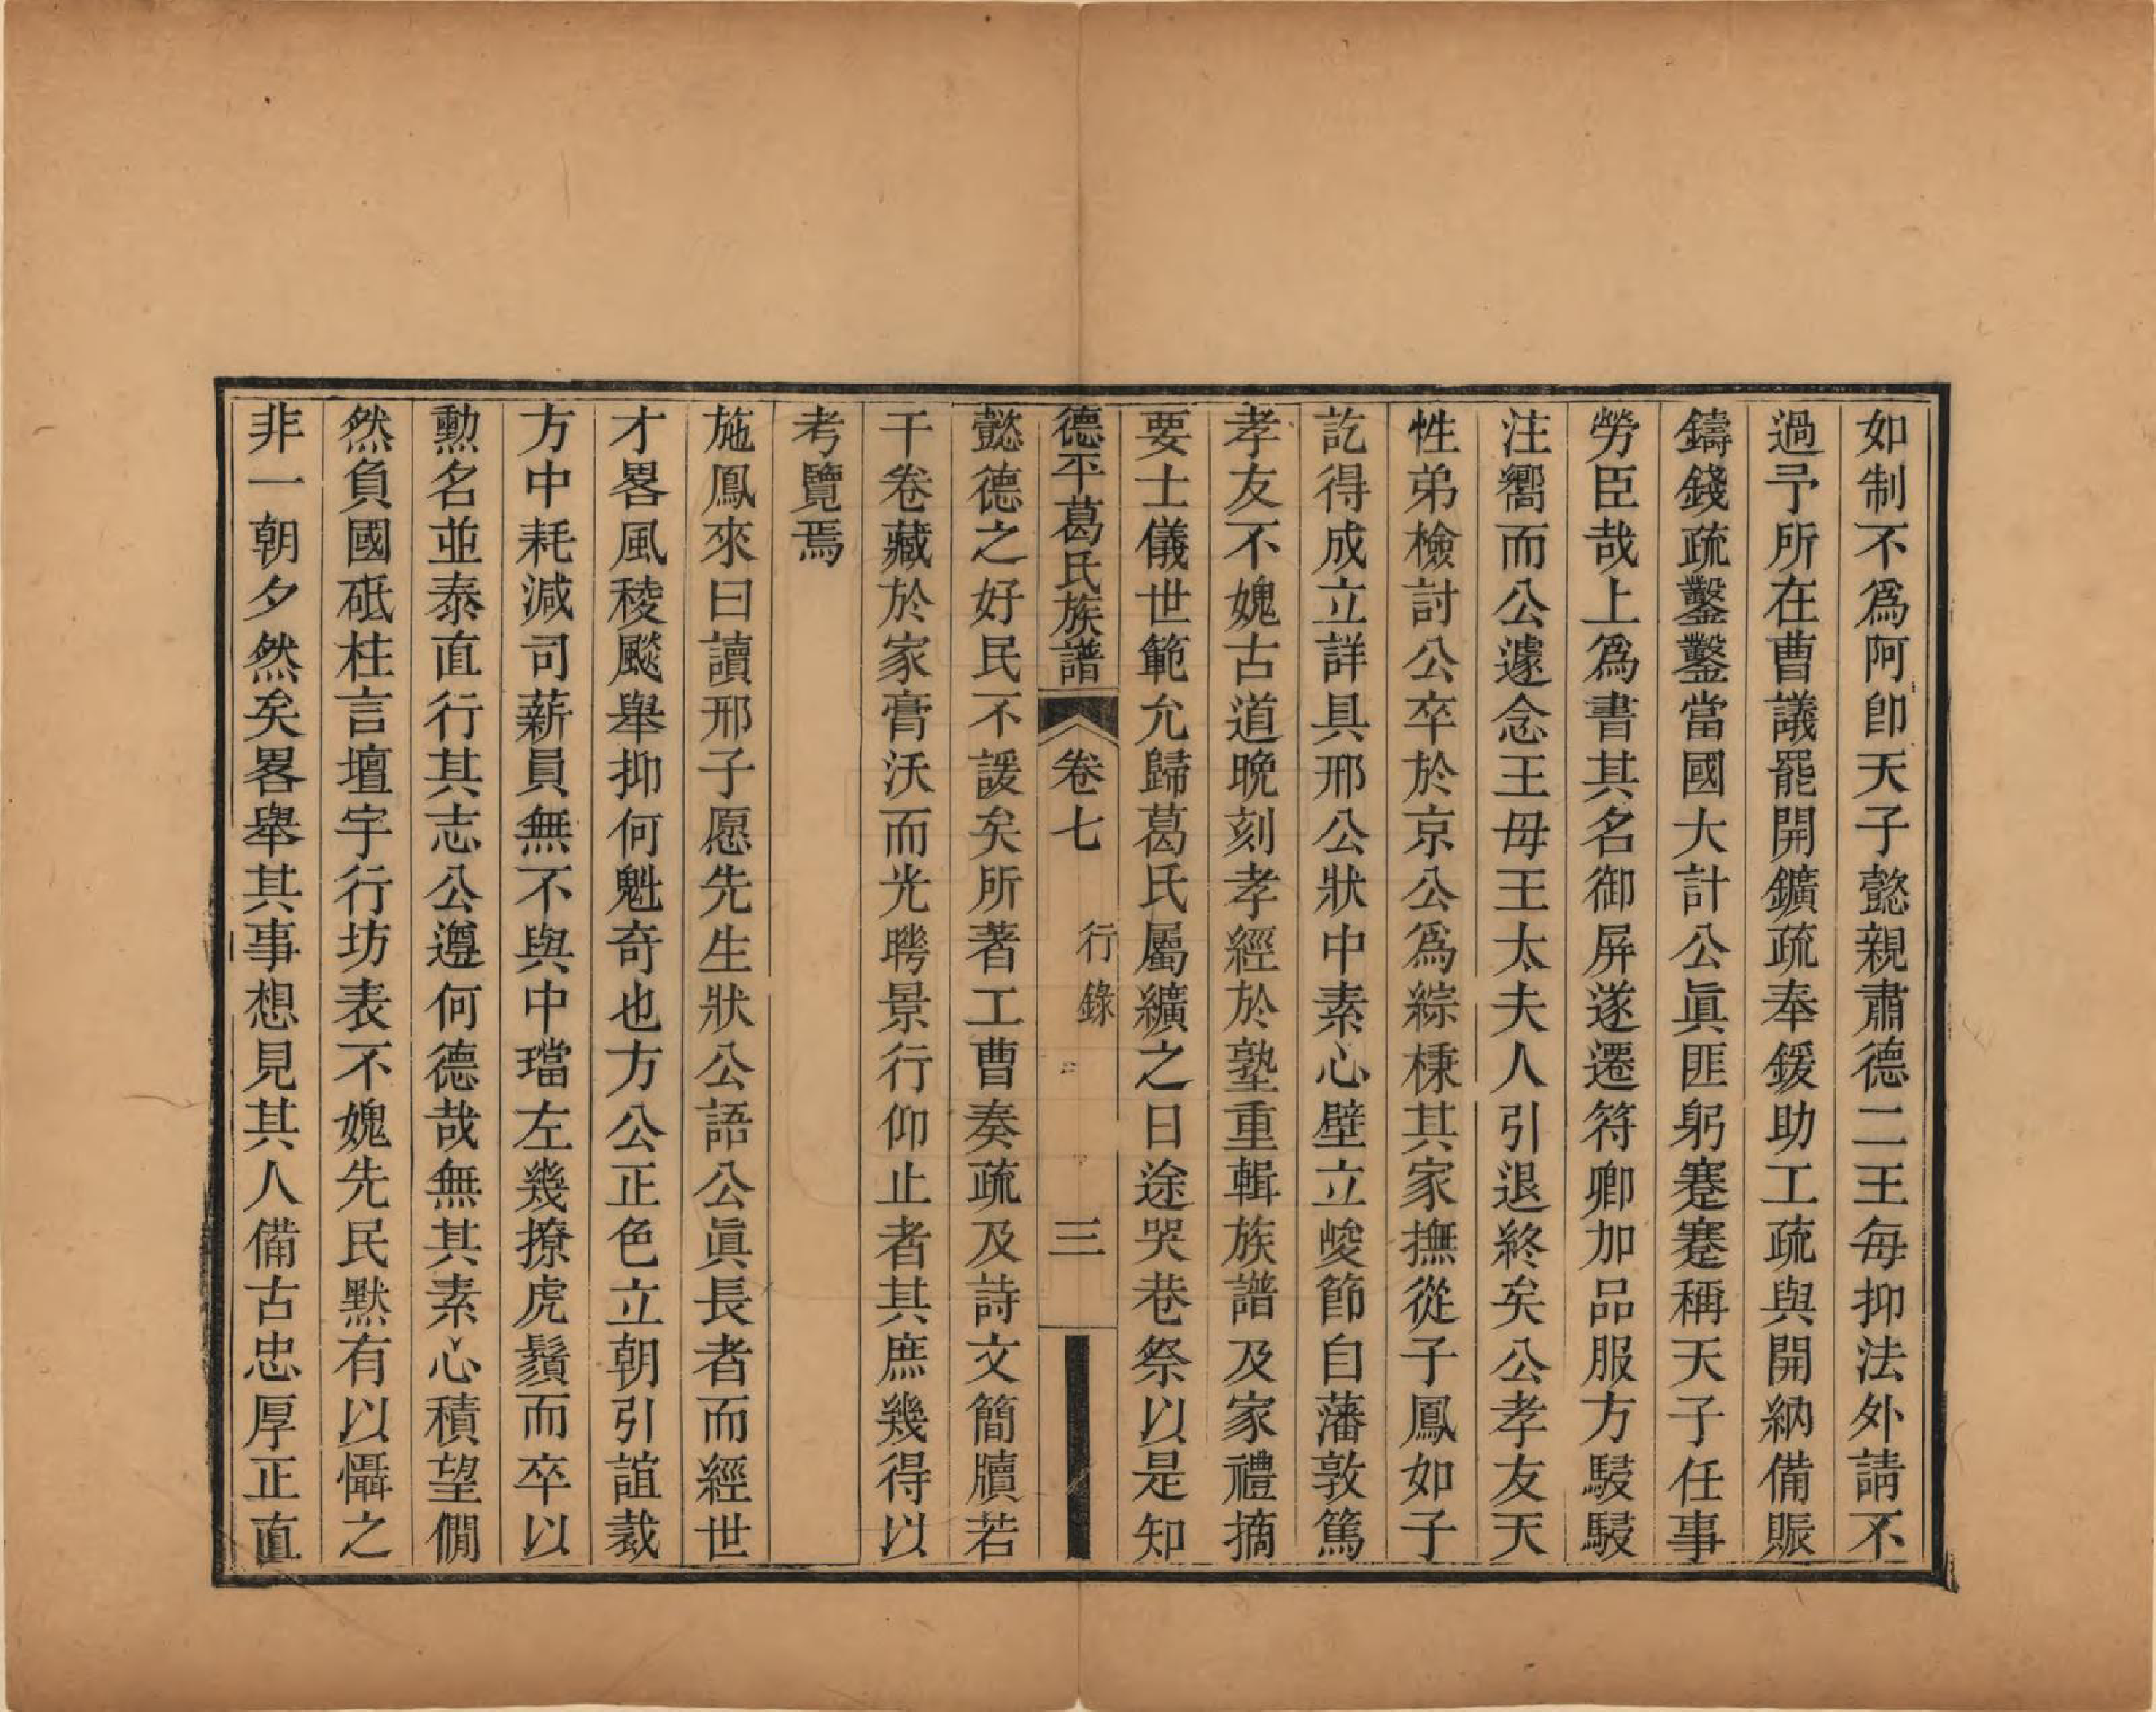 如制不爲阿卽天子懿親肅德二王每抑法外請不
過予所在曹議罷開鑛疏奉鍰助工疏與開納備賑
鑄錢疏鑿鑿當國大計公眞匪躬蹇蹇稱天子任事
勞臣哉上爲書其名御屏遂遷符卿加品服方駸駸
注嚮而公遽念王母王太夫人引退終矣公孝友天
性弟檢討公卒於京公爲綜槺其家撫從子鳳如子
訖得成立詳具邢公狀中素心壁立峻節自藩敦篤
孝友不媿古道晩刻孝經於塾重輯族譜及家禮摘
要士儀世範允歸葛氏屬纊之日途哭巷祭以是知
德平葛氏族譜 卷七 行錄 三
懿德之好民不諼矣所著工曹奏疏及詩文簡牘若
干卷藏於家膏沃而光騁景行仰止者其庶幾得以
考覽焉
施鳳來曰讀邢子愿先生狀公語公眞長者而經世
才畧風稜飈舉抑何魁奇也方公正色立朝引誼裁
方中耗減司薪員無不與中璫左幾撩虎鬚而卒以
勳名並泰直行其志公遵何德哉無其素心積望僩
然負國砥柱言壇宇行坊表不媿先民默有以懾之
非一朝夕然矣畧舉其事想見其人備古忠厚正直